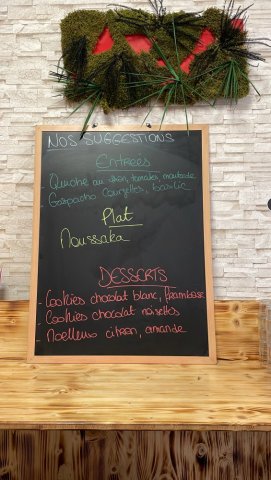 NOS SUGGESTIONS
Entrées
- Quiche au thon, tomates, moutarde
- Gaspacho courgettes, basilic
Plat
Moussaka
DESSERTS
- Cookies chocolat blanc, framboise
- Cookies chocolat noisettes
- Moelleux citron, amande